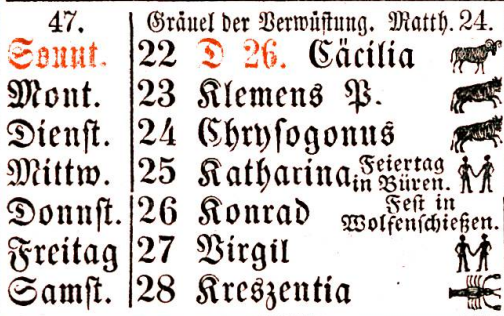 47. Gräuel der Verwüstung. Matth. 24.
Sonnt. 22 D 26. Cäcilia
Mont. 23 Klemens P.
Dienst. 24 Chrysogonus
Mittw. 25 Katharina Feiertag in Büren.
Donnst. 26 Konrad Fest in Wolfenschießen.
Freitag 27 Virgil
Samst. 28 Kreszentia